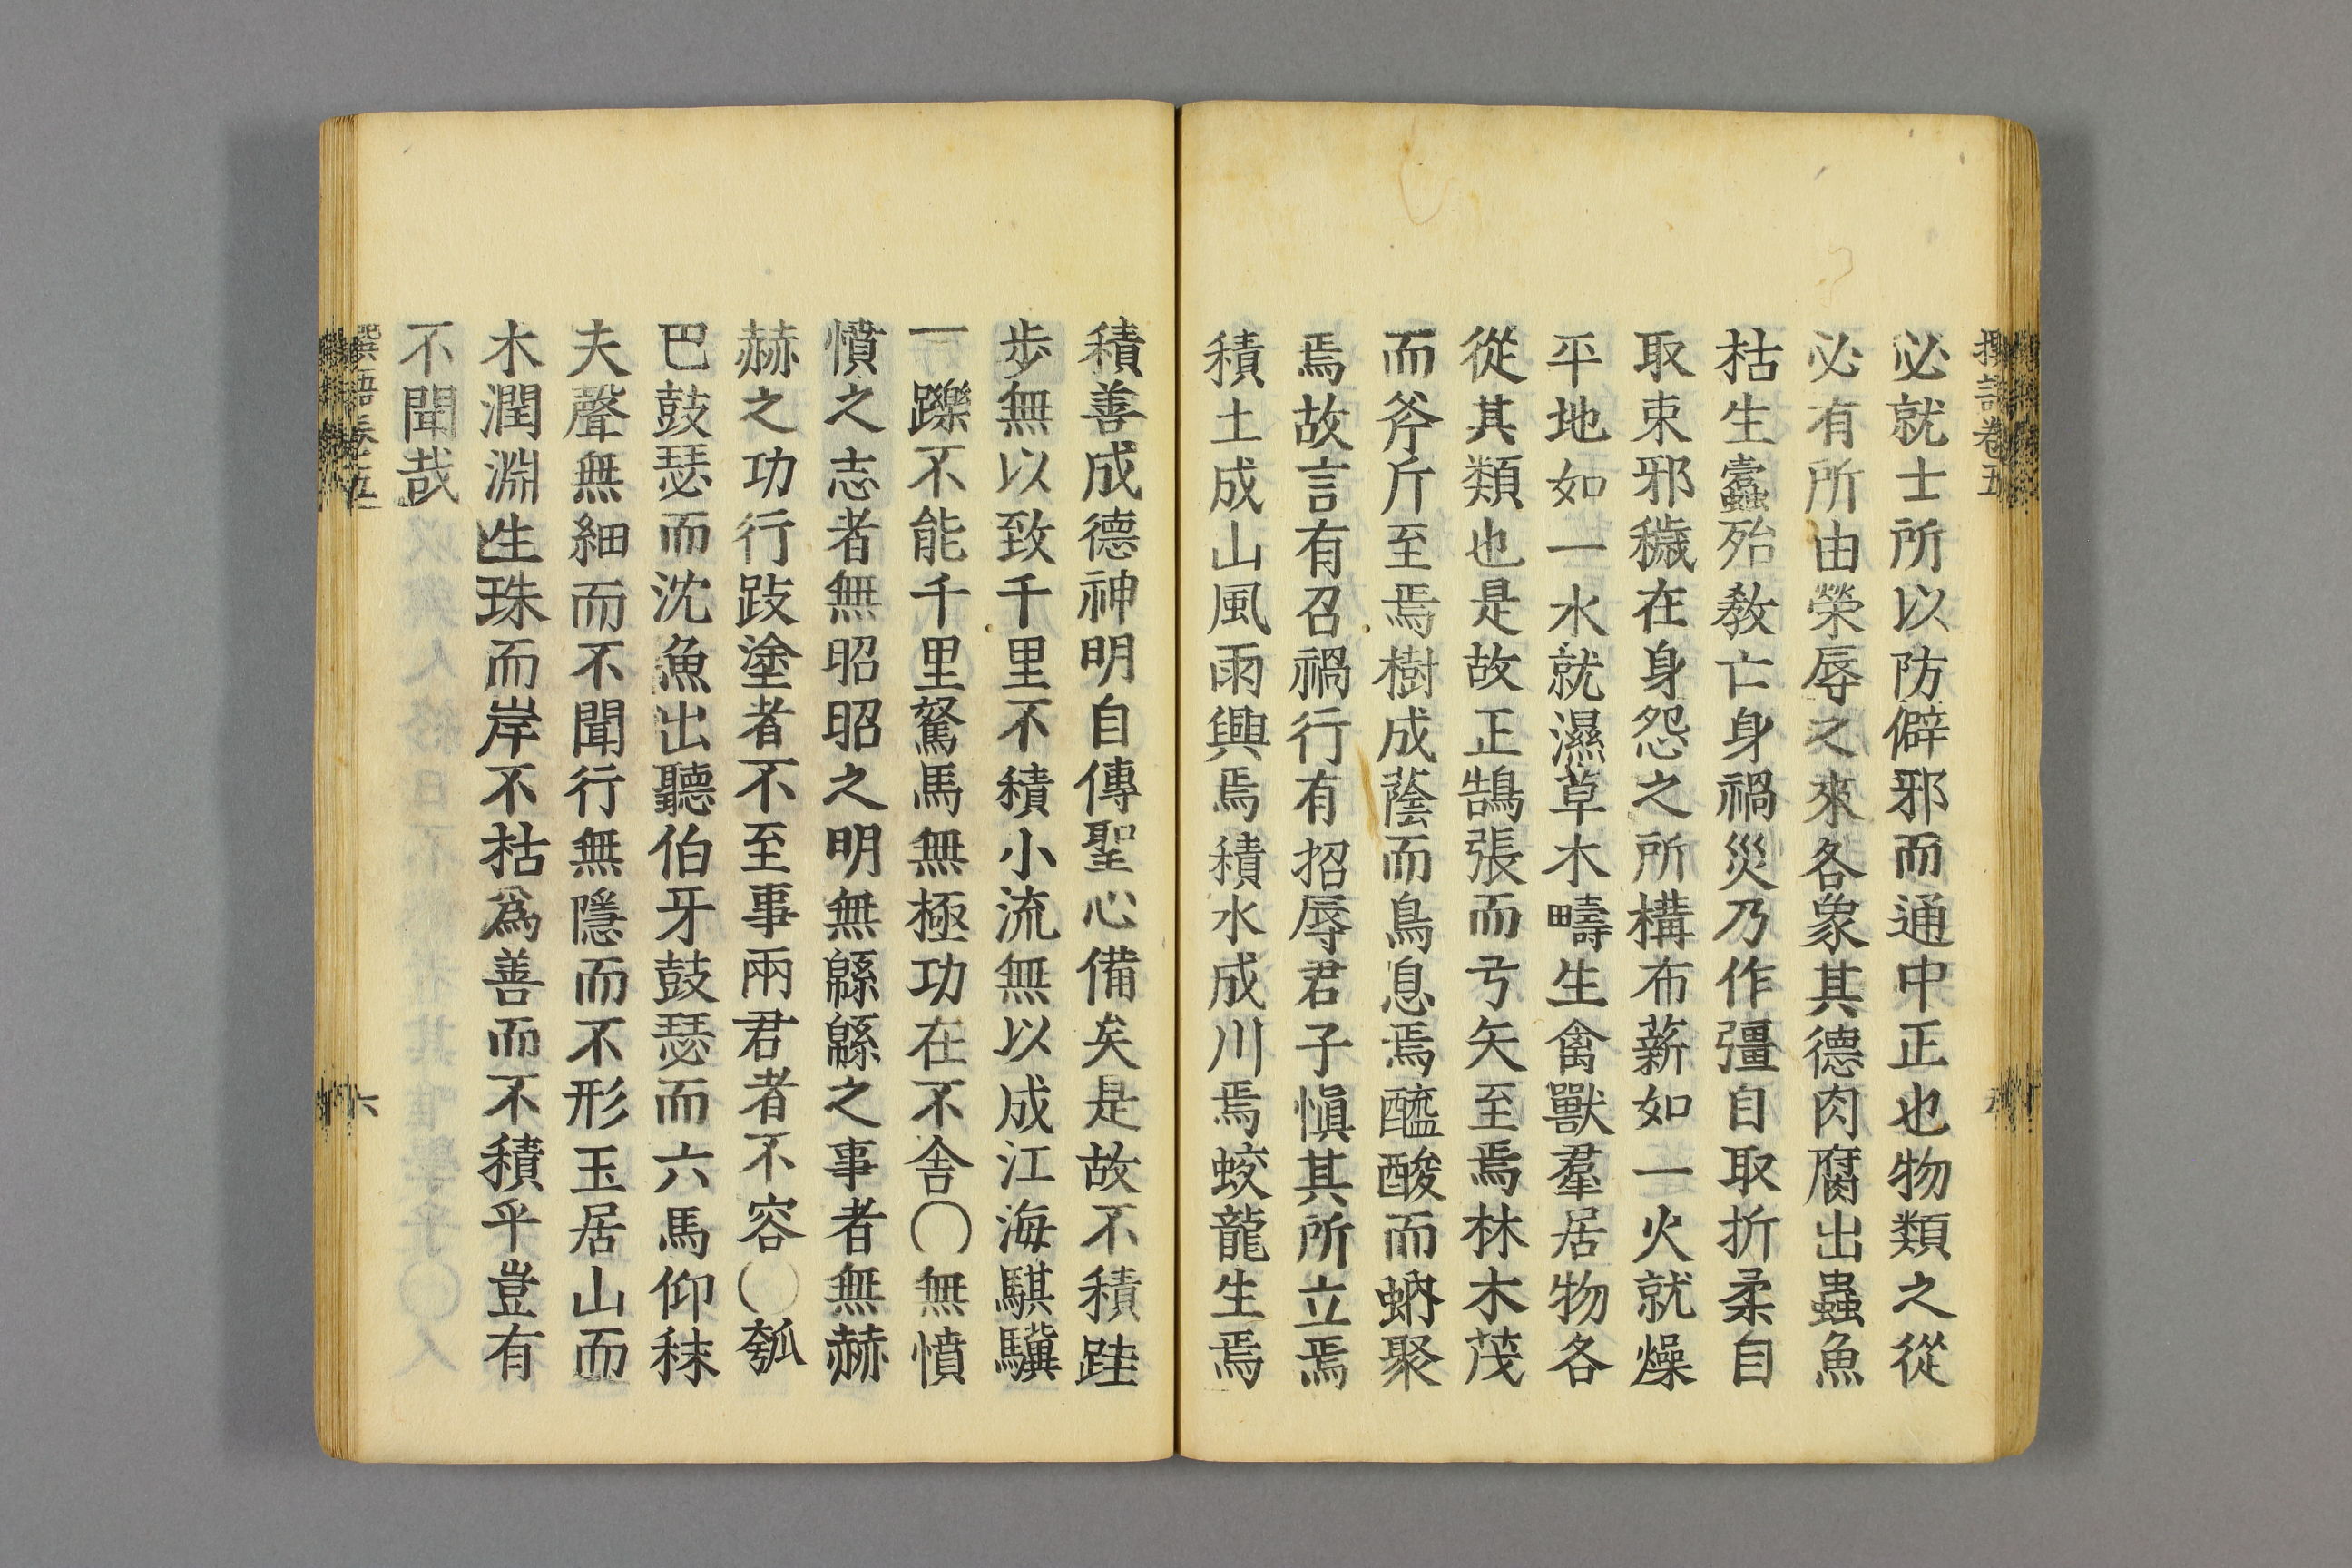 撰語卷五
必就士所以防僻邪而通中正也物類之從
必有所由榮辱之來各象其德肉腐出蟲魚
枯生蠹殆敎亡身禍災乃作彊自取折柔自
取束邪穢在身怨之所構布薪如一火就燥
平地如一水就濕草木疇生禽獸羣居物各
從其類也是故正鵠張而弓矢至焉林木茂
而斧斤至焉樹成蔭而鳥息焉醯酸而蜹聚
焉故言有召禍行有招辱君子愼其所立焉
積土成山風雨興焉積水成川焉蛟龍生焉
積善成德神明自傳聖心備矣是故不積跬
步無以致千里不積小流無以成江海騏驥
一躒不能千里駑馬無極功在不舍〇無憤
憤之志者無昭昭之明無緜緜之事者無赫
赫之功行跂塗者不至事兩君者不容〇瓠
巴鼓瑟而沈魚出聽伯牙鼓瑟而六馬仰秣
夫聲無細而不聞行無隱而不形玉居山而
木潤淵生珠而岸不枯爲善而不積乎豈有
不聞哉
撰語卷五
六